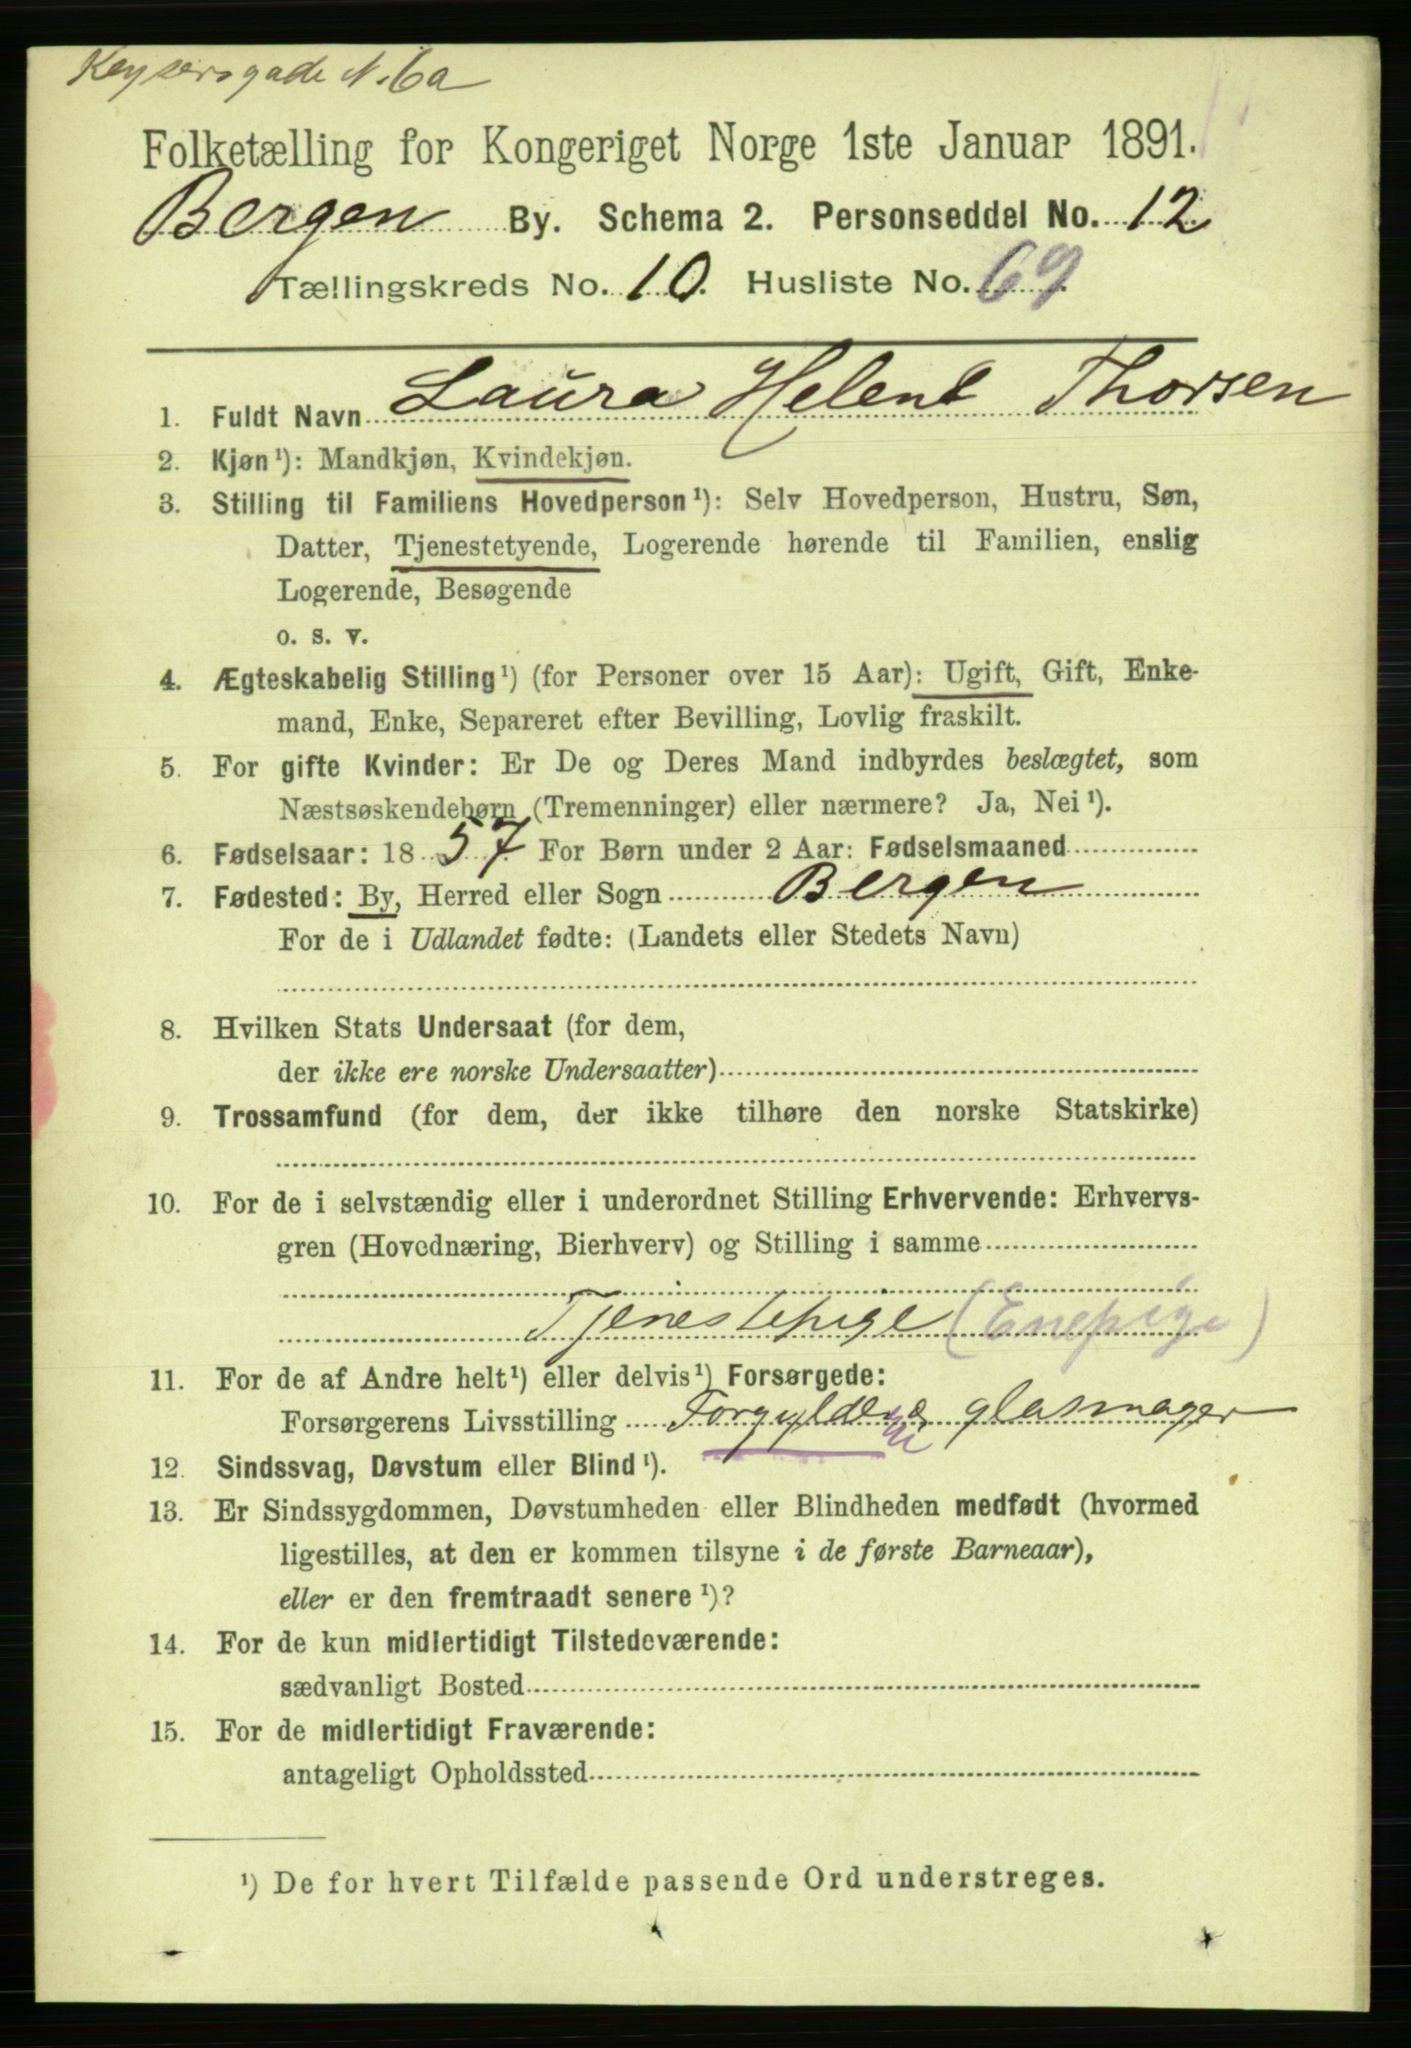 Keysersgade N. 6a
Folketælling for Kongeriget Norge 1ste Januar 1891.
Bergen By. Schema 2. Personseddel No. 12
Tællingskreds No. 10. Husliste No. 69.
1. Fuldt Navn Laura Helene Thorsen
2. Kjøn ¹): Mandkjøn, Kvindekjøn.
3. Stilling til Familiens Hovedperson ¹): Selv Hovedperson, Hustru, Søn,
Datter, Tjenestetyende, Logerende hørende til Familien, enslig
Logerende, Besøgende
o. s. v.
4. Ægteskabelig Stilling ¹) (for Personer over 15 Aar): Ugift, Gift, Enke-
mand, Enke, Separeret efter Bevilling, Lovlig fraskilt.
5. For gifte Kvinder: Er De og Deres Mand indbyrdes beslægtet, som
Næstsøskendebørn (Tremenninger) eller nærmere? Ja, Nei ¹).
6. Fødselsaar: 1857. For Børn under 2 Aar: Fødselsmaaned
7. Fødested: By, Herred eller Sogn Bergen
For de i Udlandet fødte: (Landets eller Stedets Navn)
8. Hvilken Stats Undersaat (for dem,
der ikke ere norske Undersaatter)
9. Trossamfund (for dem, der ikke tilhøre den norske Statskirke)
10. For de i selvstændig eller i underordnet Stilling Erhvervende: Erhvervs-
gren (Hovednæring, Bierhverv) og Stilling i samme
Tjenestepige (Enepige)
11. For de af Andre helt ¹) eller delvis ¹) Forsørgede:
Forsørgerens Livsstilling glasmager
12. Sindssvag, Døvstum eller Blind ¹).
13. Er Sindssygdommen, Døvstumheden eller Blindheden medfødt (hvormed
ligestilles, at den er kommen tilsyne i de første Barneaar),
eller er den fremtraadt senere ¹)?
14. For de kun midlertidigt Tilstedeværende:
sædvanligt Bosted
15. For de midlertidigt Fraværende:
antageligt Opholdssted
¹) De for hvert Tilfælde passende Ord understreges.